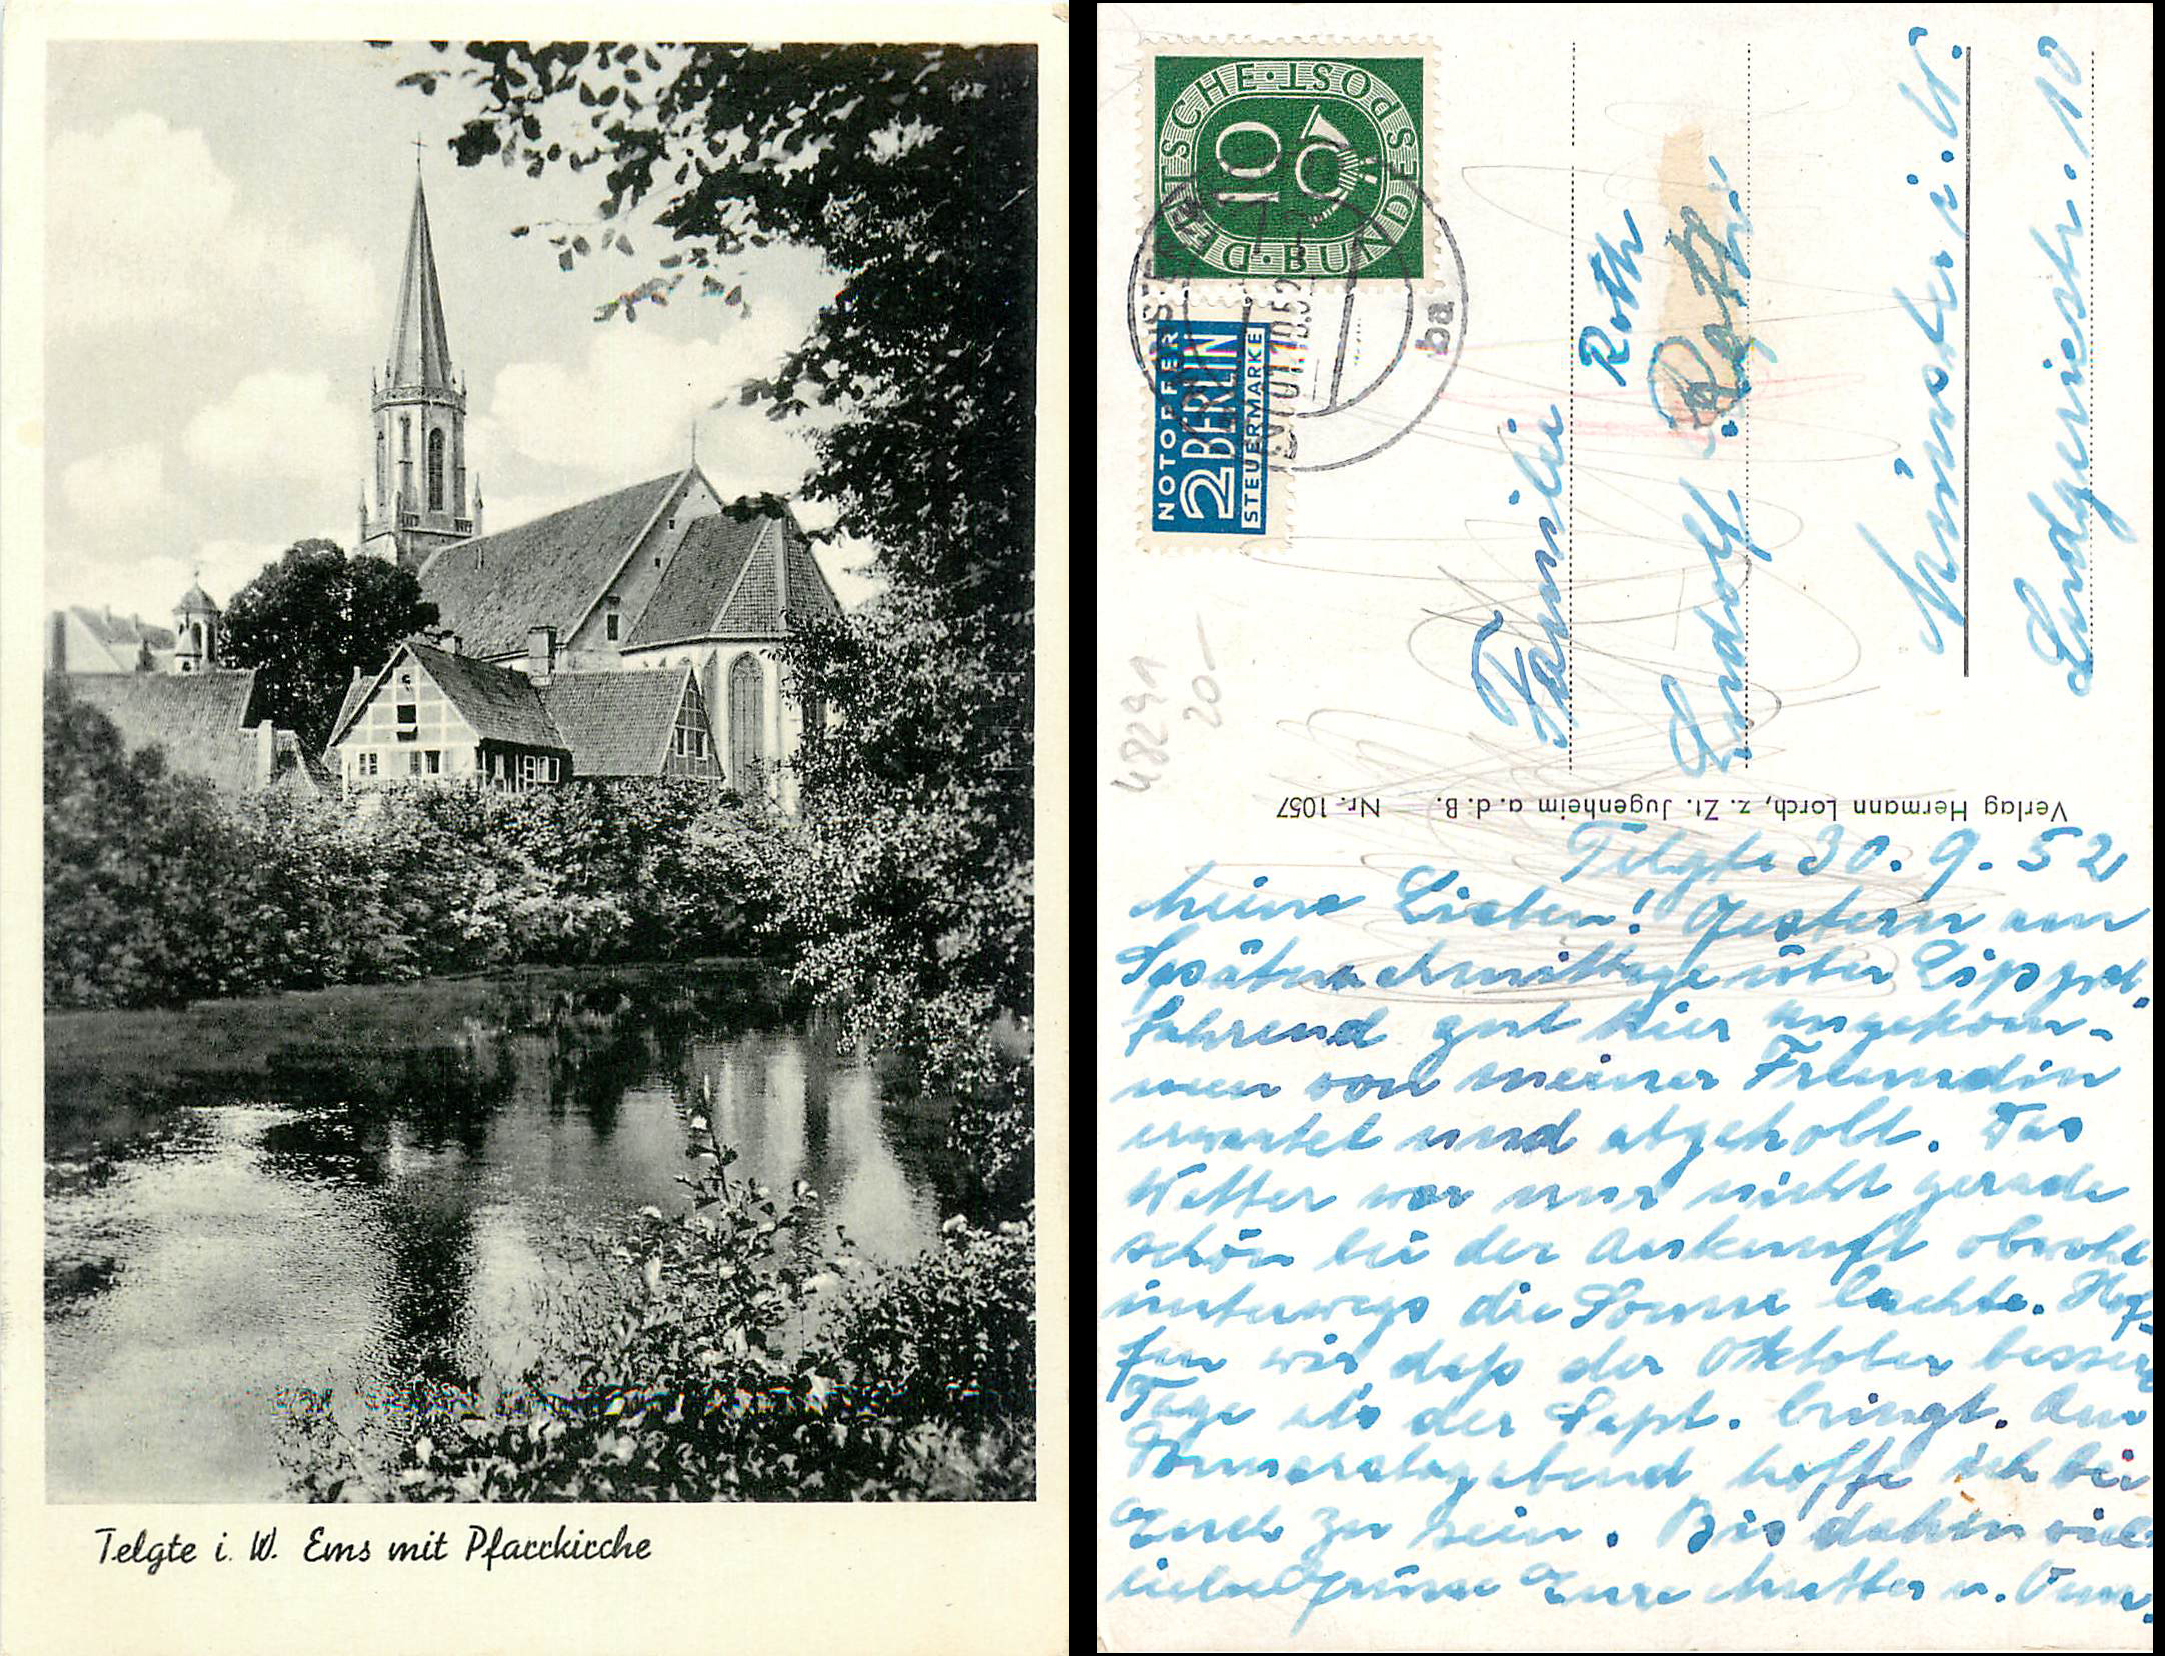 Telgte i. W. Ems mit Pfarrkirche
DEUTSCHE·BUNDESPOST·
10
NOTOPFER
2 BERLIN
STEUERMARKE
MÜNSTER
ba
48291
20–
Familie
Roth
Ludolf Roth
Münster i. W.
Ludgeriestr. 10
Verlag Hermann Lorch, z. Zt. Jugenheim a. d. B. Nr. 1057
Telgte 30. 9. 52
Meine Lieben! Gestern am
Spätnachmittage über Lippst.
fahrend gut hier angekom-
men von meiner Freundin
erwartet und abgeholt. Das
Wetter war nur nicht gerade
schön bei der Ankunft obwohl
unterwegs die Sonne lachte. Hof-
fen wir daß der Oktober bessere
Tage als der Sept. bringt. Am
Donnerstagabend hoffe ich bei
Euch zu sein. Bis dahin viel
liebe Grüsse Eure Mutter u. Oma.